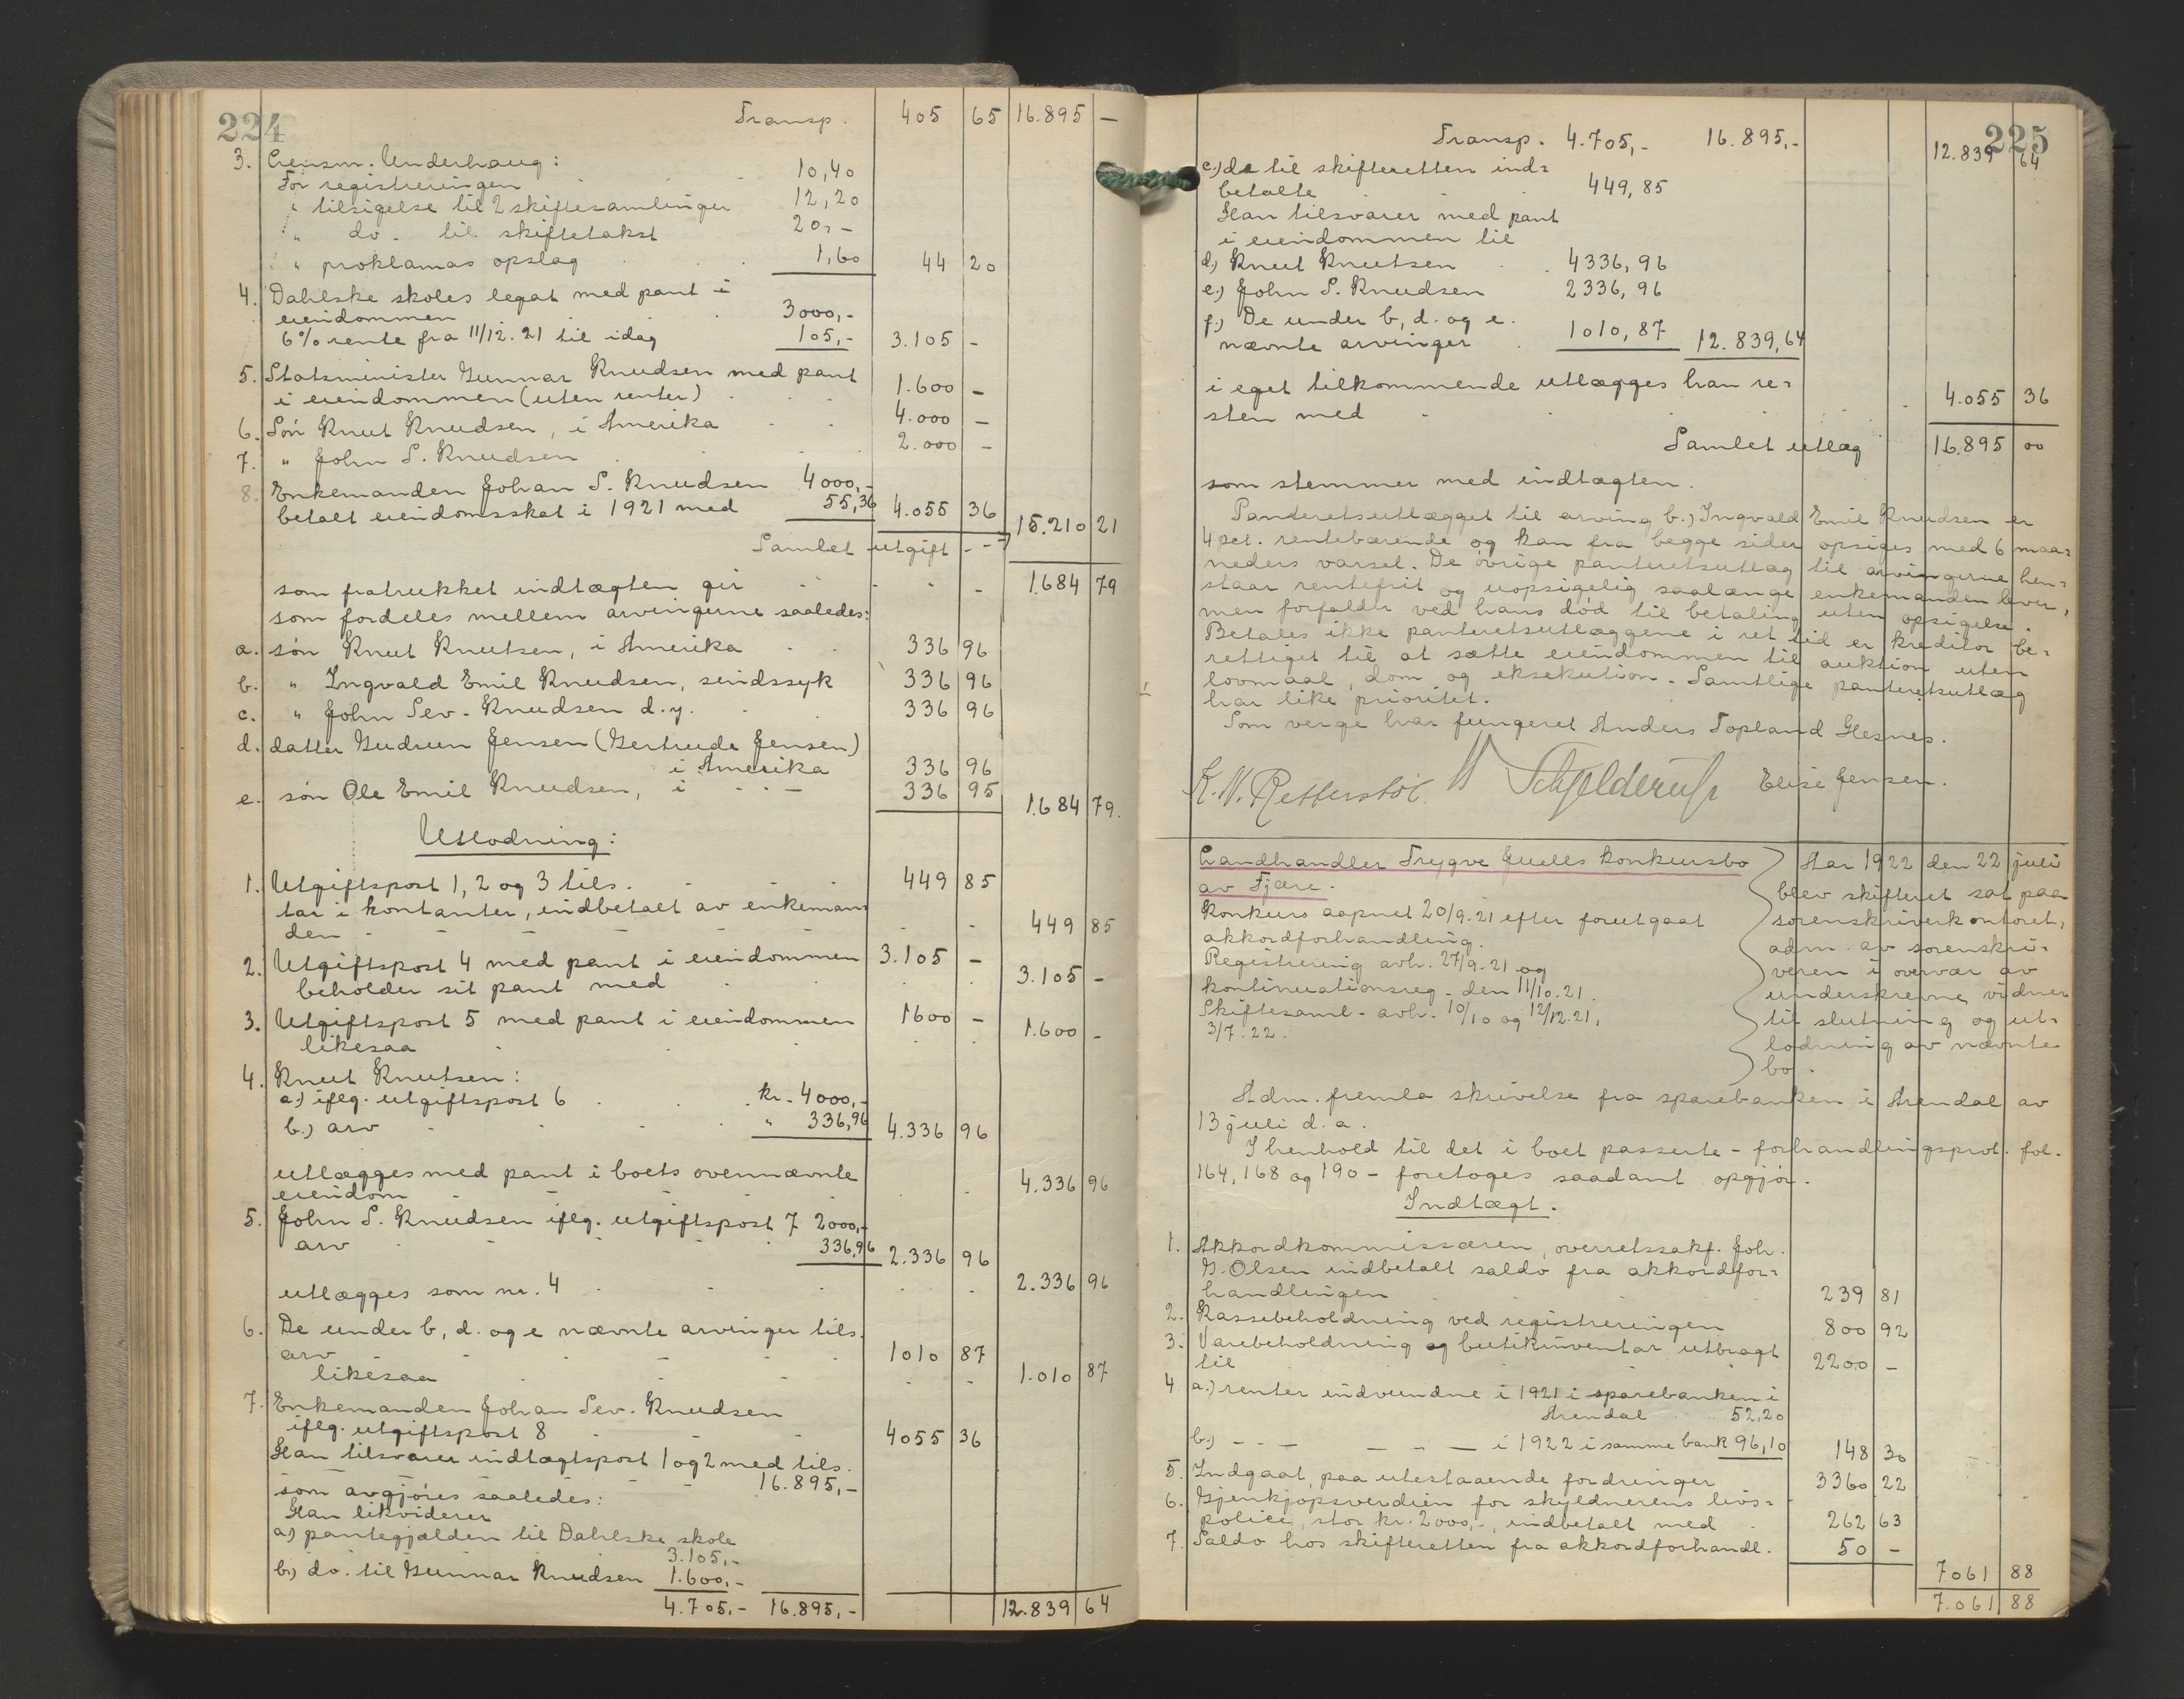 224
Transp. 405 65 16.895 —
3. Lensm. Underhaug:
For registreringen 10,40
" tilsigelse til 2 skiftesamlinger 12,20
" do. til skiftetakst 20,-
" proklamas opslag 1,60 44 20
4. Dahlske skoles legat med pant i
eiendommen 3000,-
6% rente fra 11/12.21 til idag 105,- 3.105 -
5. Statsminister Gunnar Knudsen med pant
i eiendommen (uten renter) 1.600 -
6. Søn Knut Knudsen, i Amerika 4.000 -
7. " John S. Knudsen 2.000 -
8. Enkemanden Johan S. Knudsen 4000,-
betalt eiendomsskat i 1921 med 55,36 4.055 36 15.210 21
Samlet utgift
som fratrukket indtægten gir 1684 79
som fordeles mellem arvingerne saaledes:
a. søn Knut Knutsen, i Amerika 336 96
b. " Ingvald Emil Knudsen, sindssyk 336 96
c. " John Sev. Knudsen d.y. 336 96
d. datter Gudrun Jensen (Gertrude Jensen)
i Amerika 336 96
e. søn Ole Emil Knudsen, i - - - 336 95 1.684 79.
Utlodning:
1. Utgiftspost 1, 2 og 3 tils. 449 85
tar i kontanter, indbetalt av enkeman=
den 449 85
2. Utgiftspost 4 med pant i eiendommen 3.105 -
beholder sit pant med 3.105 -
3. Utgiftspost 5 med pant i eiendommen 1600 -
likesaa 1.600 -
4. Knut Knutsen:
a.) iflg. utgiftspost 6 kr. 4000,-
b.) arv " 336,96 4.336 96
utlægges med pant i boets ovennævnte
eiendom 4.336 96
5. John S. Knudsen iflg. utgiftspost 7 2000,-
arv 336,96 2.336 96
utlægges som nr. 4 2.336 96
6. De under b, d. og e nævnte arvinger tils.
arv 1010 87
likesaa 1.010 87
7. Enkemanden Johan Sev. Knudsen
iflg. utgiftspost 8 4055 36
Han tilsvarer indtægtspost 1 og 2 med tils.
16.895,-
som avgjøres saaledes:
Han likviderer
a) pantegjælden til Dahlske skole
3.105,-
b.) do. til Gunnar Knudsen 1.600,-
4.705,- 16.895,- 12.839 64
225
Transp. 4.705,- 16.895,- 12.839 64
c.) de til skifteretten ind=
betalte 449,85
Han tilsvarer med pant
i eiendommen til
d.) Knut Knutsen 4336,96
e.) John S. Knudsen 2336,96
f.) De under b, d. og e.
nævnte arvinger 1010,87 12.839,64
i eget tilkommende utlægges han re=
sten med 4.055 36
Samlet utlæg 16.895 00
som stemmer med indtægten.
Panteretsutlægget til arving b.) Ingvald Emil Knudsen er
4 pct. rentebærende og kan fra begge sider opsiges med 6 maa=
neders varsel. De øvrige panteretsutlæg til arvingerne hen=
staar rentefrit og uopsigelig saalænge enkemanden lever,
men forfalder ved hans død til betaling uten opsigelse.
Betales ikke panteretsutlæggene i ret tid er kreditor be=
rettiget til at sætte eiendommen til auktion uten
lovmaal, dom og eksekution. Samtlige panteretsutlæg
har like prioritet.
Som verge har fungeret Anders Topland Hesnes.
Schjelderup Elise Jensen.
Landhandler Trygve Juells konkursbo
av Fjære.
Konkurs aapnet 20/9.21 efter forutgaat
akkordforhandling.
Registrering avh. 27/9.21 og
kontinuationsreg. den 11/10.21.
Skiftesaml. avh. 10/10 og 12/12.21,
3/7.22.
Aar 1922 den 22 juli
blev skifteret sat paa
sorenskriverkontoret,
adm. av sorenskri=
veren i overvær av
underskrevne vidner
til slutning og ut=
lodning av nævnte
bo.
Adm. fremla skrivelse fra sparebanken i Arendal av
13 juli d.a.
I henhold til det i boet passerte - forhandlingsprot. fol.
164, 168 og 190 - foretoges saadant opgjør.
Indtægt.
1. Akkordkommissæren, overretssakf. Joh.
G. Olsen indbetalt saldo fra akkordfor=
handlingen 239 81
2. Kassebeholdning ved registreringen 800 92
3. Varebeholdning og butikinventar utbragt
til 2200 -
4 a.) renter indvundne i 1921 i sparebanken i
Arendal 52,20
b.) - - - - " - i 1922 i samme bank 96,10 148 30
5. Indgaat paa utestaaende fordringer 3360 22
6. Gjenkjøpsverdien for skyldnerens livs=
police, stor kr. 2000,-, indbetalt med 262 63
7. Saldo hos skifteretten fra akkordforhandl. 50 -
7061 88
7.061 88